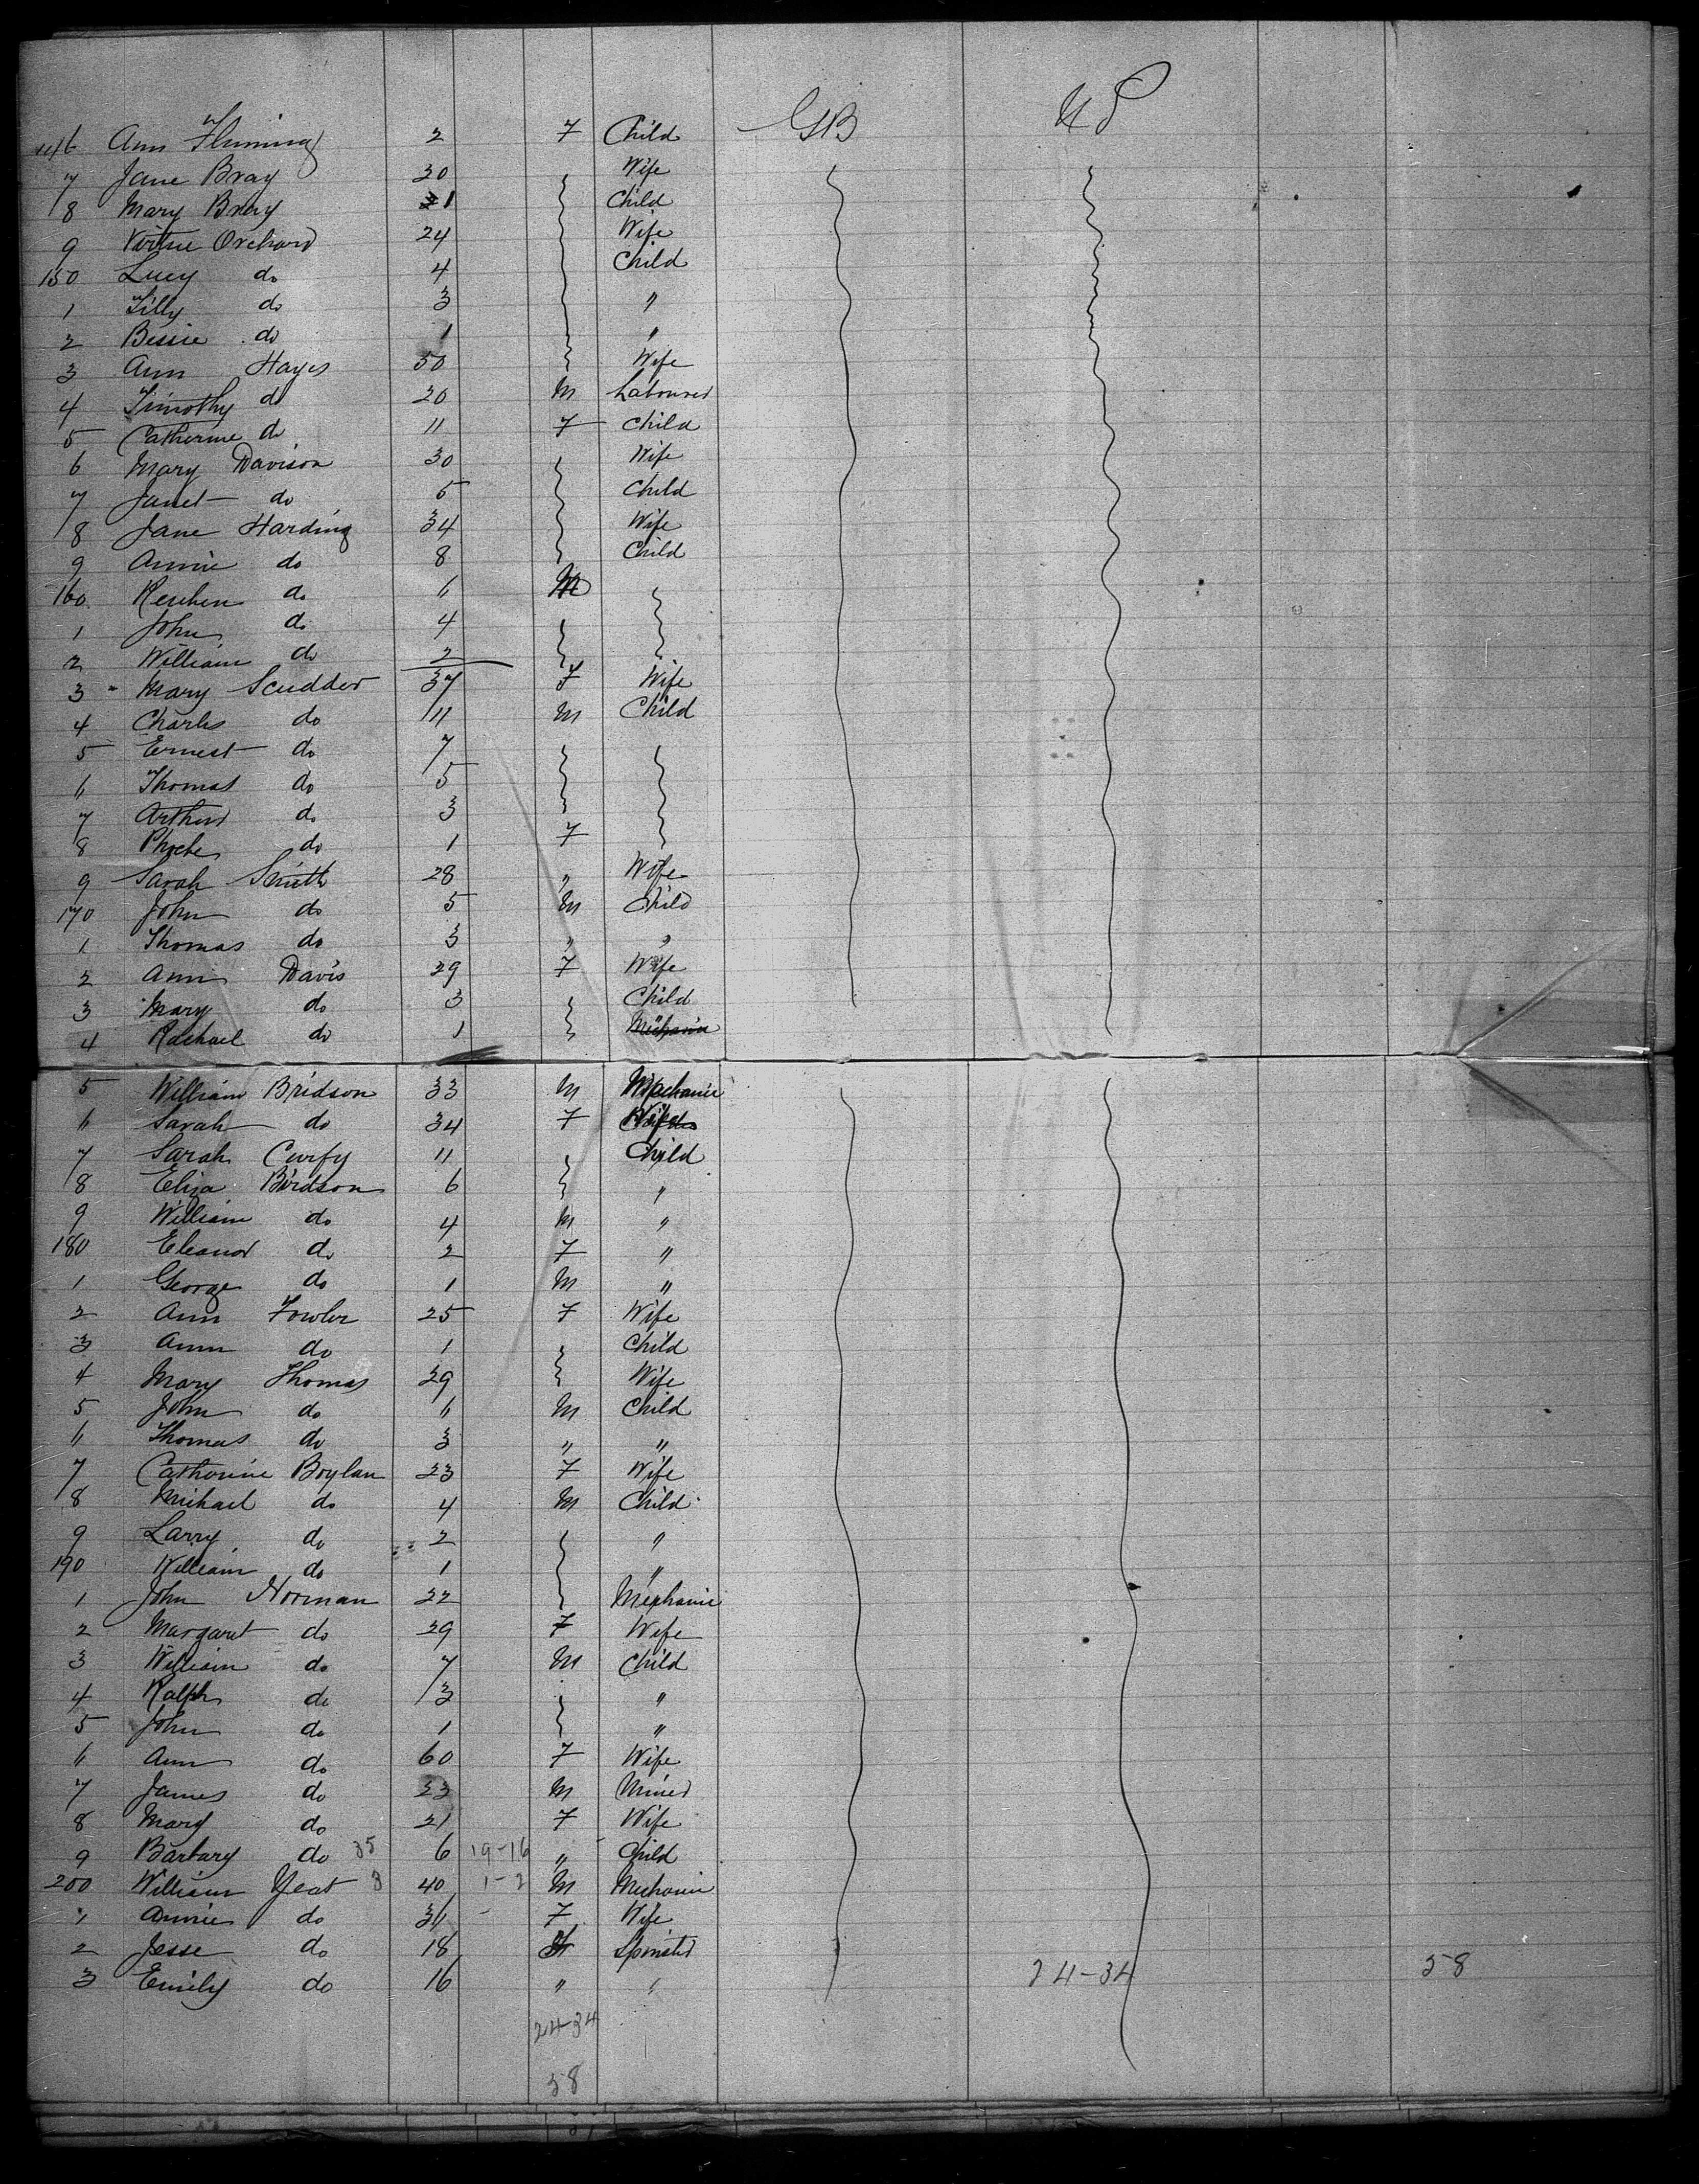 146 Ann Fleming 2 F Child GB US
7 Jane Bray 30 Wife
8 Mary Bray 1 Child
9 Virtue Orchard 24 Wife
150 Lucy do 4 Child
1 Lilly do 3 "
2 Bessie do 1 "
3 Ann Hayes 50 Wife
4 Timothy do 20 M Labourer
5 Catherine do 11 F Child
6 Mary Davison 30 Wife
7 Janet do 5 Child
8 Jane Harding 34 Wife
9 Annie do 8 Child
160 Reuben do 6 M
1 John do 4
2 William do 2
3 Mary Scudder 37 F Wife
4 Charles do 11 M Child
5 Ernest do 7
6 Thomas do 5
7 Arthur do 3
8 Phoebe do 1 F
9 Sarah Smith 28 " Wife
170 John do 5 M Child
1 Thomas do 3 " "
2 Ann Davis 29 F Wife
3 Mary do 3 Child
4 Rachael do 1 "
5 William Bridson 33 M Mechanic
6 Sarah do 34 F Wife
7 Sarah Curfy 11 Child
8 Eliza Birdson 6 "
9 William do 4 M "
180 Eleanor do 2 F "
1 George do 1 M "
2 Ann Fowler 25 F Wife
3 Ann do 1 Child
4 Mary Thomas 29 Wife
5 John do 6 M Child
6 Thomas do 3 " "
7 Catherine Boylan 23 F Wife
8 Michael do 4 M Child
9 Larry do 2 "
190 William do 1 "
1 John Norman 22 Mechanic
2 Margaret do 29 F Wife
3 William do 7 M Child
4 Ralph do 3 "
5 John do 1 "
6 Ann do 60 F Wife
7 James do 23 M Miner
8 Mary do 21 F Wife
9 Barbary do 35 6 19-16 " Child
200 William Yeat 3 40 1-2 M Mechanic
1 Annie do 36 F Wife
2 Jesse do 18 F Spinster
3 Emily do 16 " "
24-34 58
24-34
58